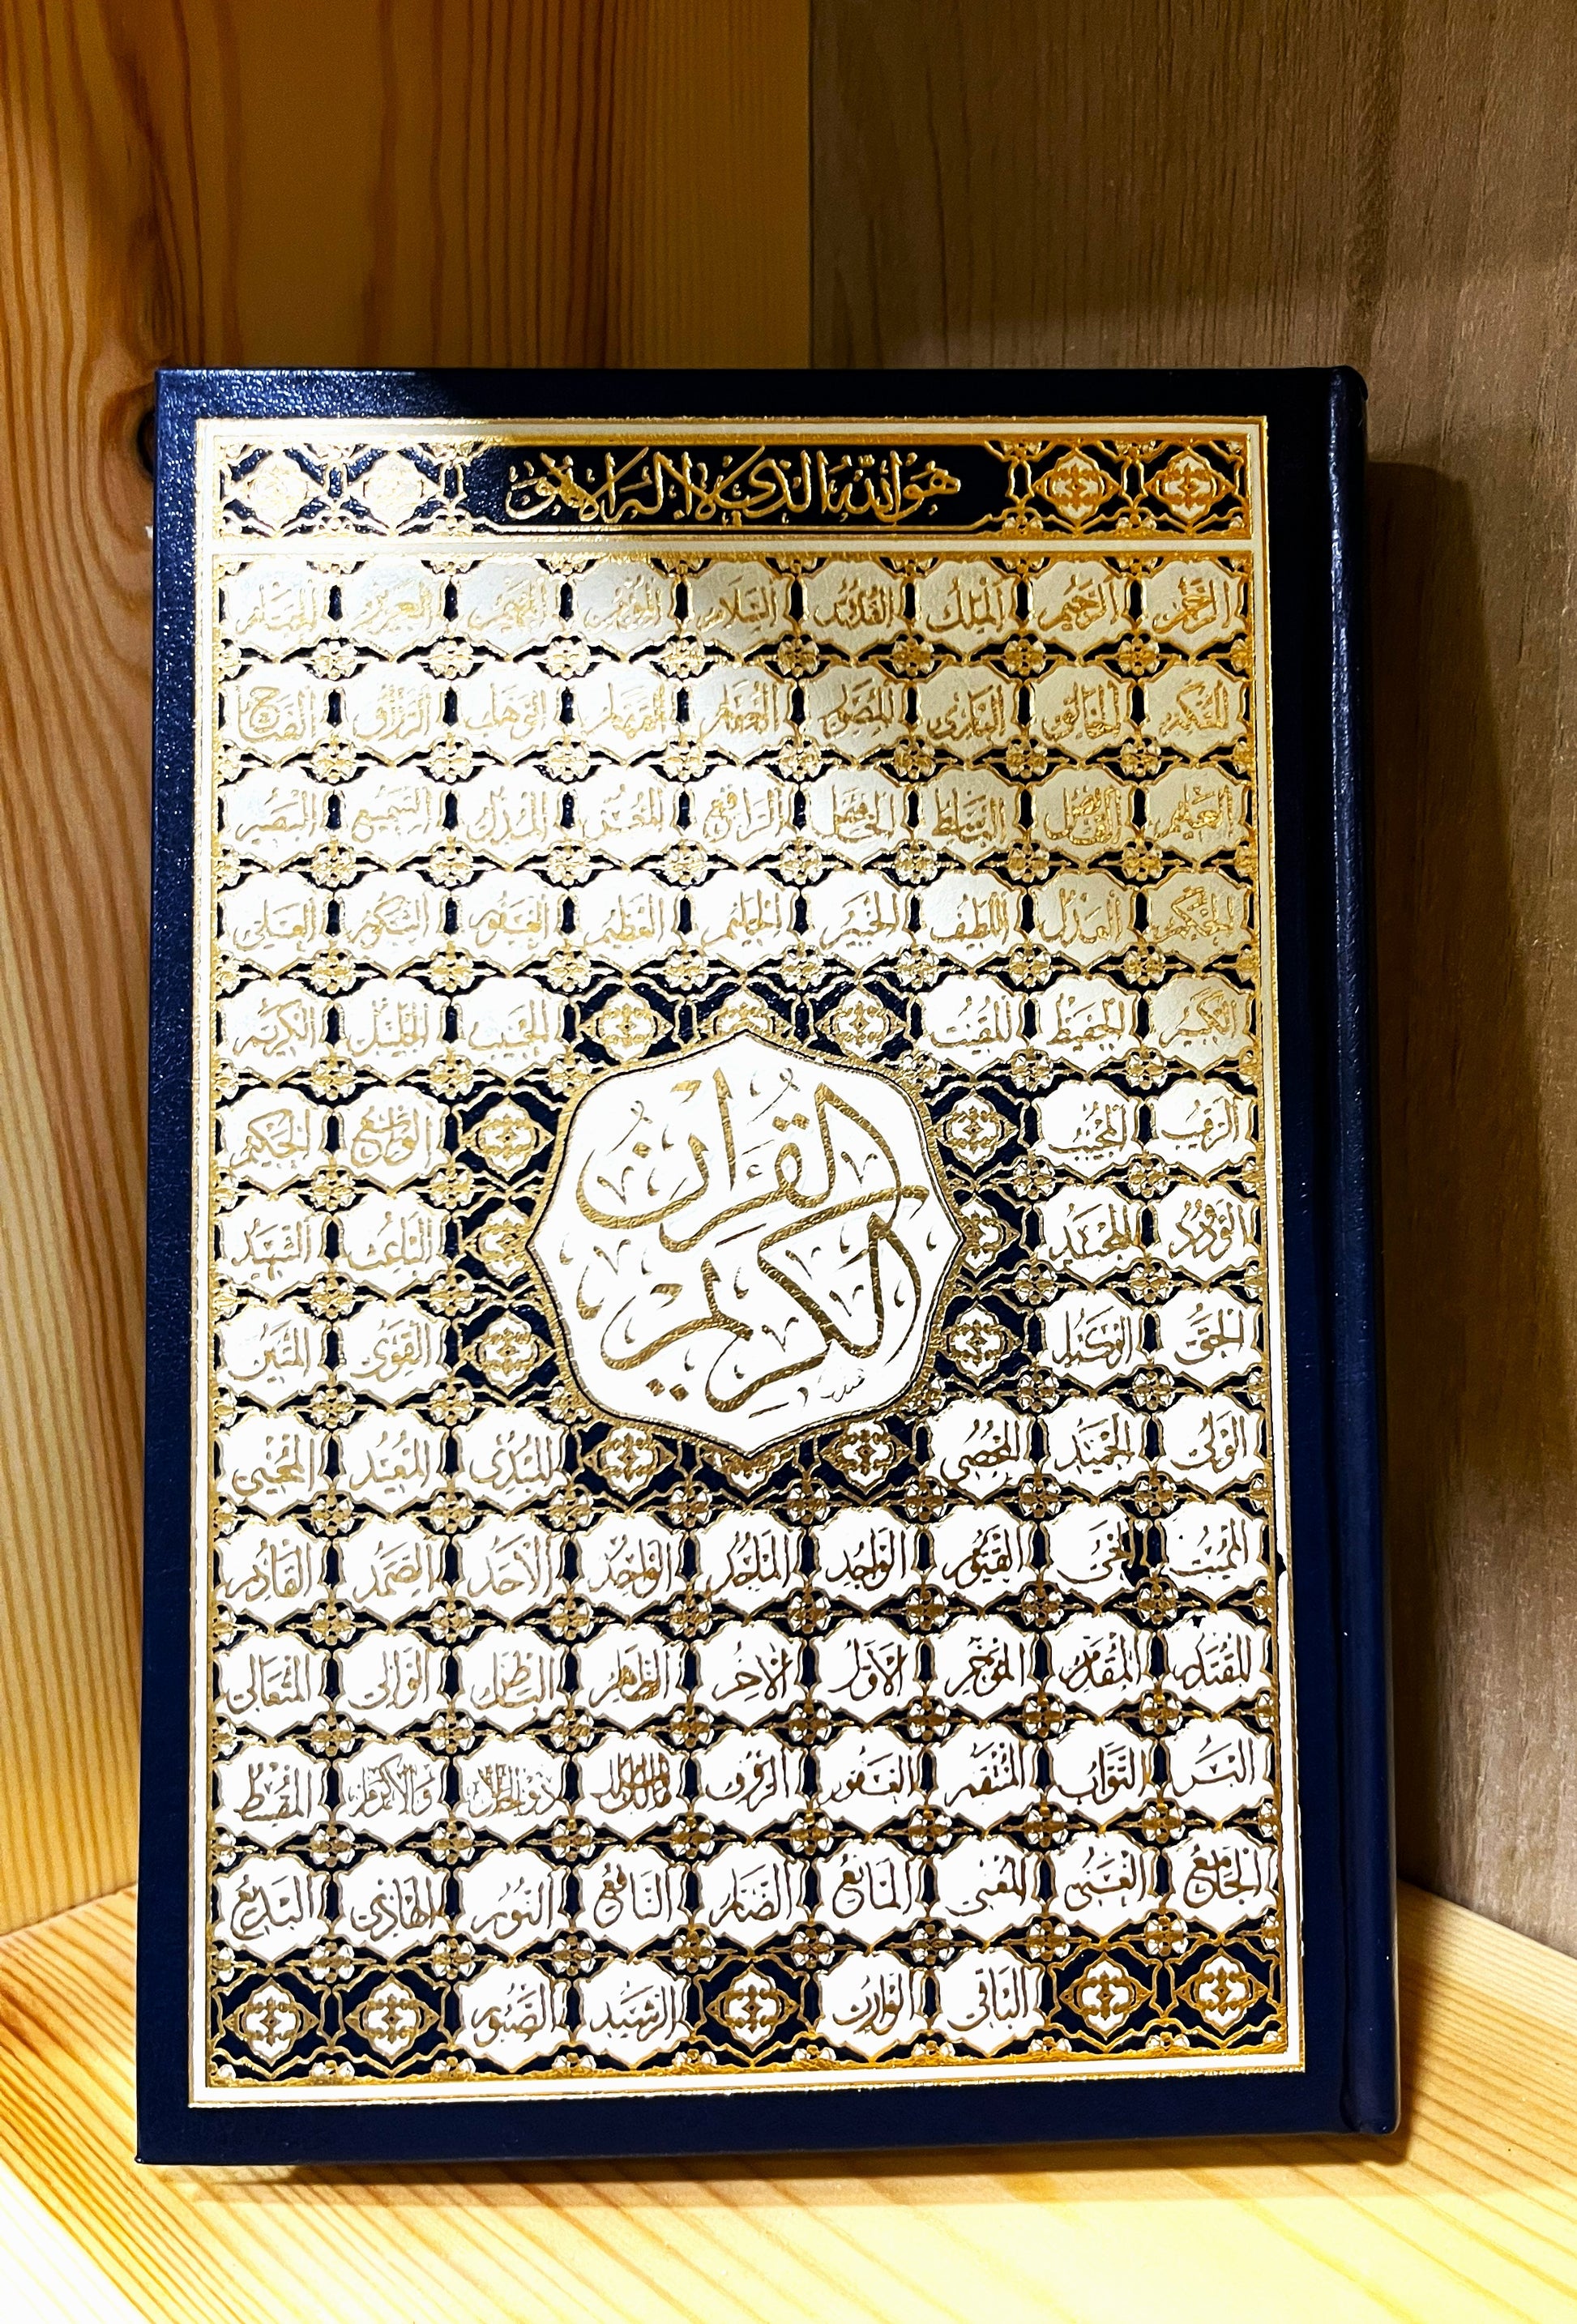 هُوَ اللّٰهُ الَّذِي لَا إِلٰهَ إِلَّا هُوَ
الرحمن الرحيم الملك القدوس السلام المؤمن المهيمن العزيز الجبار
المتكبر الخالق البارئ المصور الغفار القهار الوهاب الرزاق الفتاح
العليم القابض الباسط الخافض الرافع المعز المذل السميع البصير
الحكم العدل اللطيف الخبير الحليم العظيم الغفور الشكور العلي
الكبير الحفيظ المقيت الجليل الكريم
الرقيب المجيب الواسع الحكيم
الودود المجيد الباعث الشهيد
القرآن
الكريم
الحق الوكيل القوى المتين
الولى الحميد المحصى المبدئ المعيد المحيى
المميت الحى القيوم الواجد الماجد الواحد الأحد الصمد القادر
المقتدر المقدم المؤخر الأول الآخر الظاهر الباطن الوالى المتعالى
البر التواب المنتقم العفو الرؤف مالك الملك ذو الجلال والاكرام المقسط
الجامع الغنى المغنى المانع الضار النافع النور الهادى البديع
الباقى الوارث الرشيد الصبور